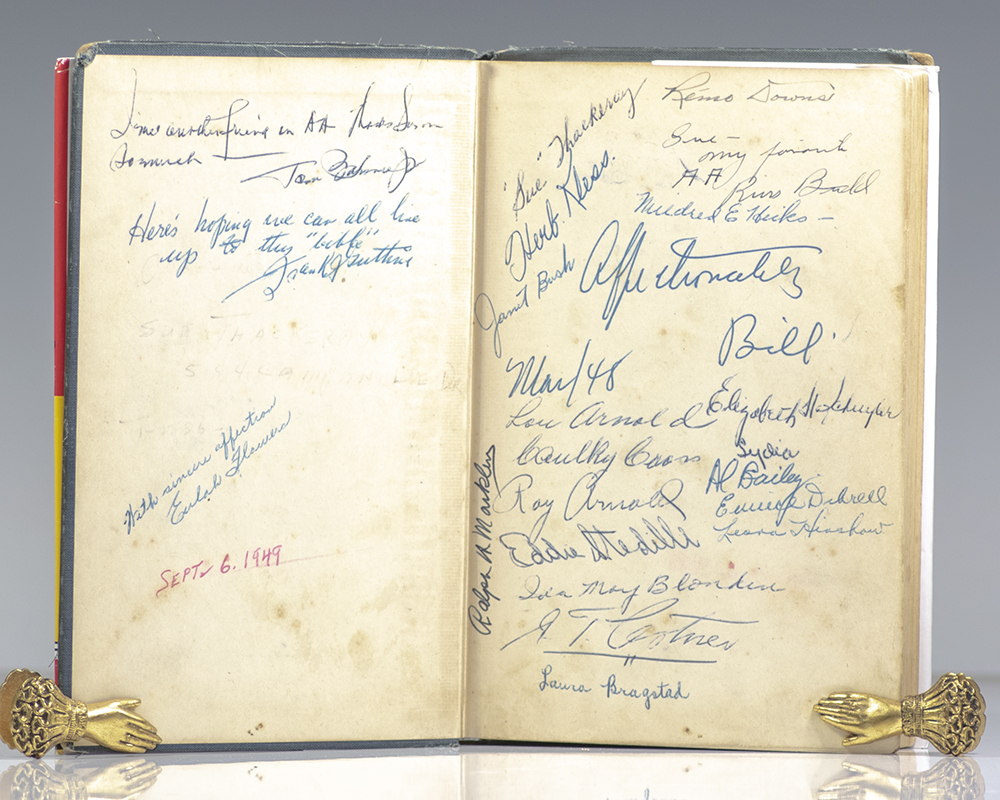 in AA Thanks
so much
Tom Jr
Here's hoping we can all live
up to this "bible"
Frank J Guthrie
With sincere affection
Eulah Flowers
SEPT 6. 1949
"Sue" Thackeray
Herb Hess.
Janet Bush
Remo Downs
Sue—
my favorite
AA
Budd
Mildred E Hicks —
Affectionately
Bill
Mar/48
Lou Arnold
Elizabeth
Caulky Coons
Lydia
Al Bailey
Roy Arnold
Eunice Dibrell
Leora Hinshow
Eddie Stedilli
Ida May Blondin
Ralph A Marklin
T.
Laura Bragstad